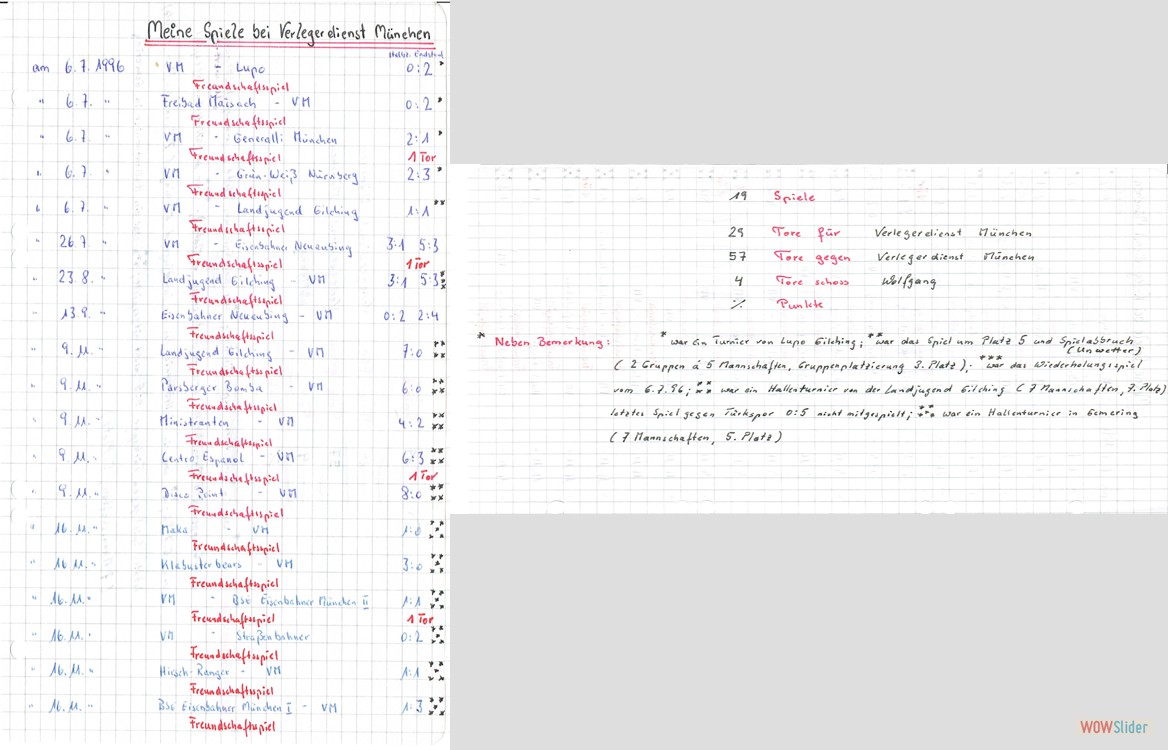 Meine Spiele bei Verlegerdienst München
Halbz. Endstand
am 6.7.1996 VM - Lupo 0:2 *
Freundschaftsspiel
" 6.7. " Freibad Maisach - VM 0:2 *
Freundschaftsspiel
" 6.7 " VM - Generalli München 2:1 *
Freundschaftsspiel 1 Tor
" 6.7 " VM - Grün-Weiß Nürnberg 2:3 *
Freundschaftsspiel
" 6.7 " VM - Landjugend Gilching 1:1 **
Freundschaftsspiel
" 26.7. " VM - Eisenbahner Neuaubing 3:1 5:3
Freundschaftsspiel 1 Tor
" 23.8. " Landjugend Gilching - VM 3:1 5:3 ***
Freundschaftsspiel
" 13.9. " Eisenbahner Neuaubing - VM 0:2 2:4
Freundschaftsspiel
" 9.11. " Landjugend Gilching - VM 7:0 ****
Freundschaftsspiel
" 9.11. " Parsberger Bomba - VM 6:0 ****
Freundschaftsspiel
" 9.11. " Ministranten - VM 4:2 ****
Freundschaftsspiel
" 9.11. " Centro Espanol - VM 6:3 ****
Freundschaftsspiel 1 Tor
" 9.11. " Disco Point - VM 8:0 ****
Freundschaftsspiel
" 16.11. " Maka - VM 1:0 *****
Freundschaftsspiel
" 16.11. " Klabusterbears - VM 3:0 *****
Freundschaftsspiel
" 16.11. " VM - Bsc Eisenbahner München II 1:1 *****
Freundschaftsspiel 1 Tor
" 16.11. " VM - Straßenbahner 0:2 *****
Freundschaftsspiel
" 16.11. " Hirsch-Ranger - VM 1:1 *****
Freundschaftsspiel
" 16.11. " Bsc Eisenbahner München I - VM 1:3 *****
Freundschaftsspiel
19 Spiele
29 Tore für Verlegerdienst München
57 Tore gegen Verlegerdienst München
4 Tore schoss Wolfgang
% Punkte
* Neben Bemerkung: * war ein Turnier von Lupo Gilching; ** war das Spiel um Platz 5 und Spielabbruch
(Unwetter)
(2 Gruppen á 5 Mannschaften, Gruppenplatzierung 3. Platz); *** war das Wiederholungsspiel
vom 6.7.96; **** war ein Hallenturnier von der Landjugend Gilching (7 Mannschaften, 7. Platz)
letztes Spiel gegen Türkspor 0:5 nicht mitgespielt; ***** war ein Hallenturnier in Germering
(7 Mannschaften, 5. Platz)
WOWSlider